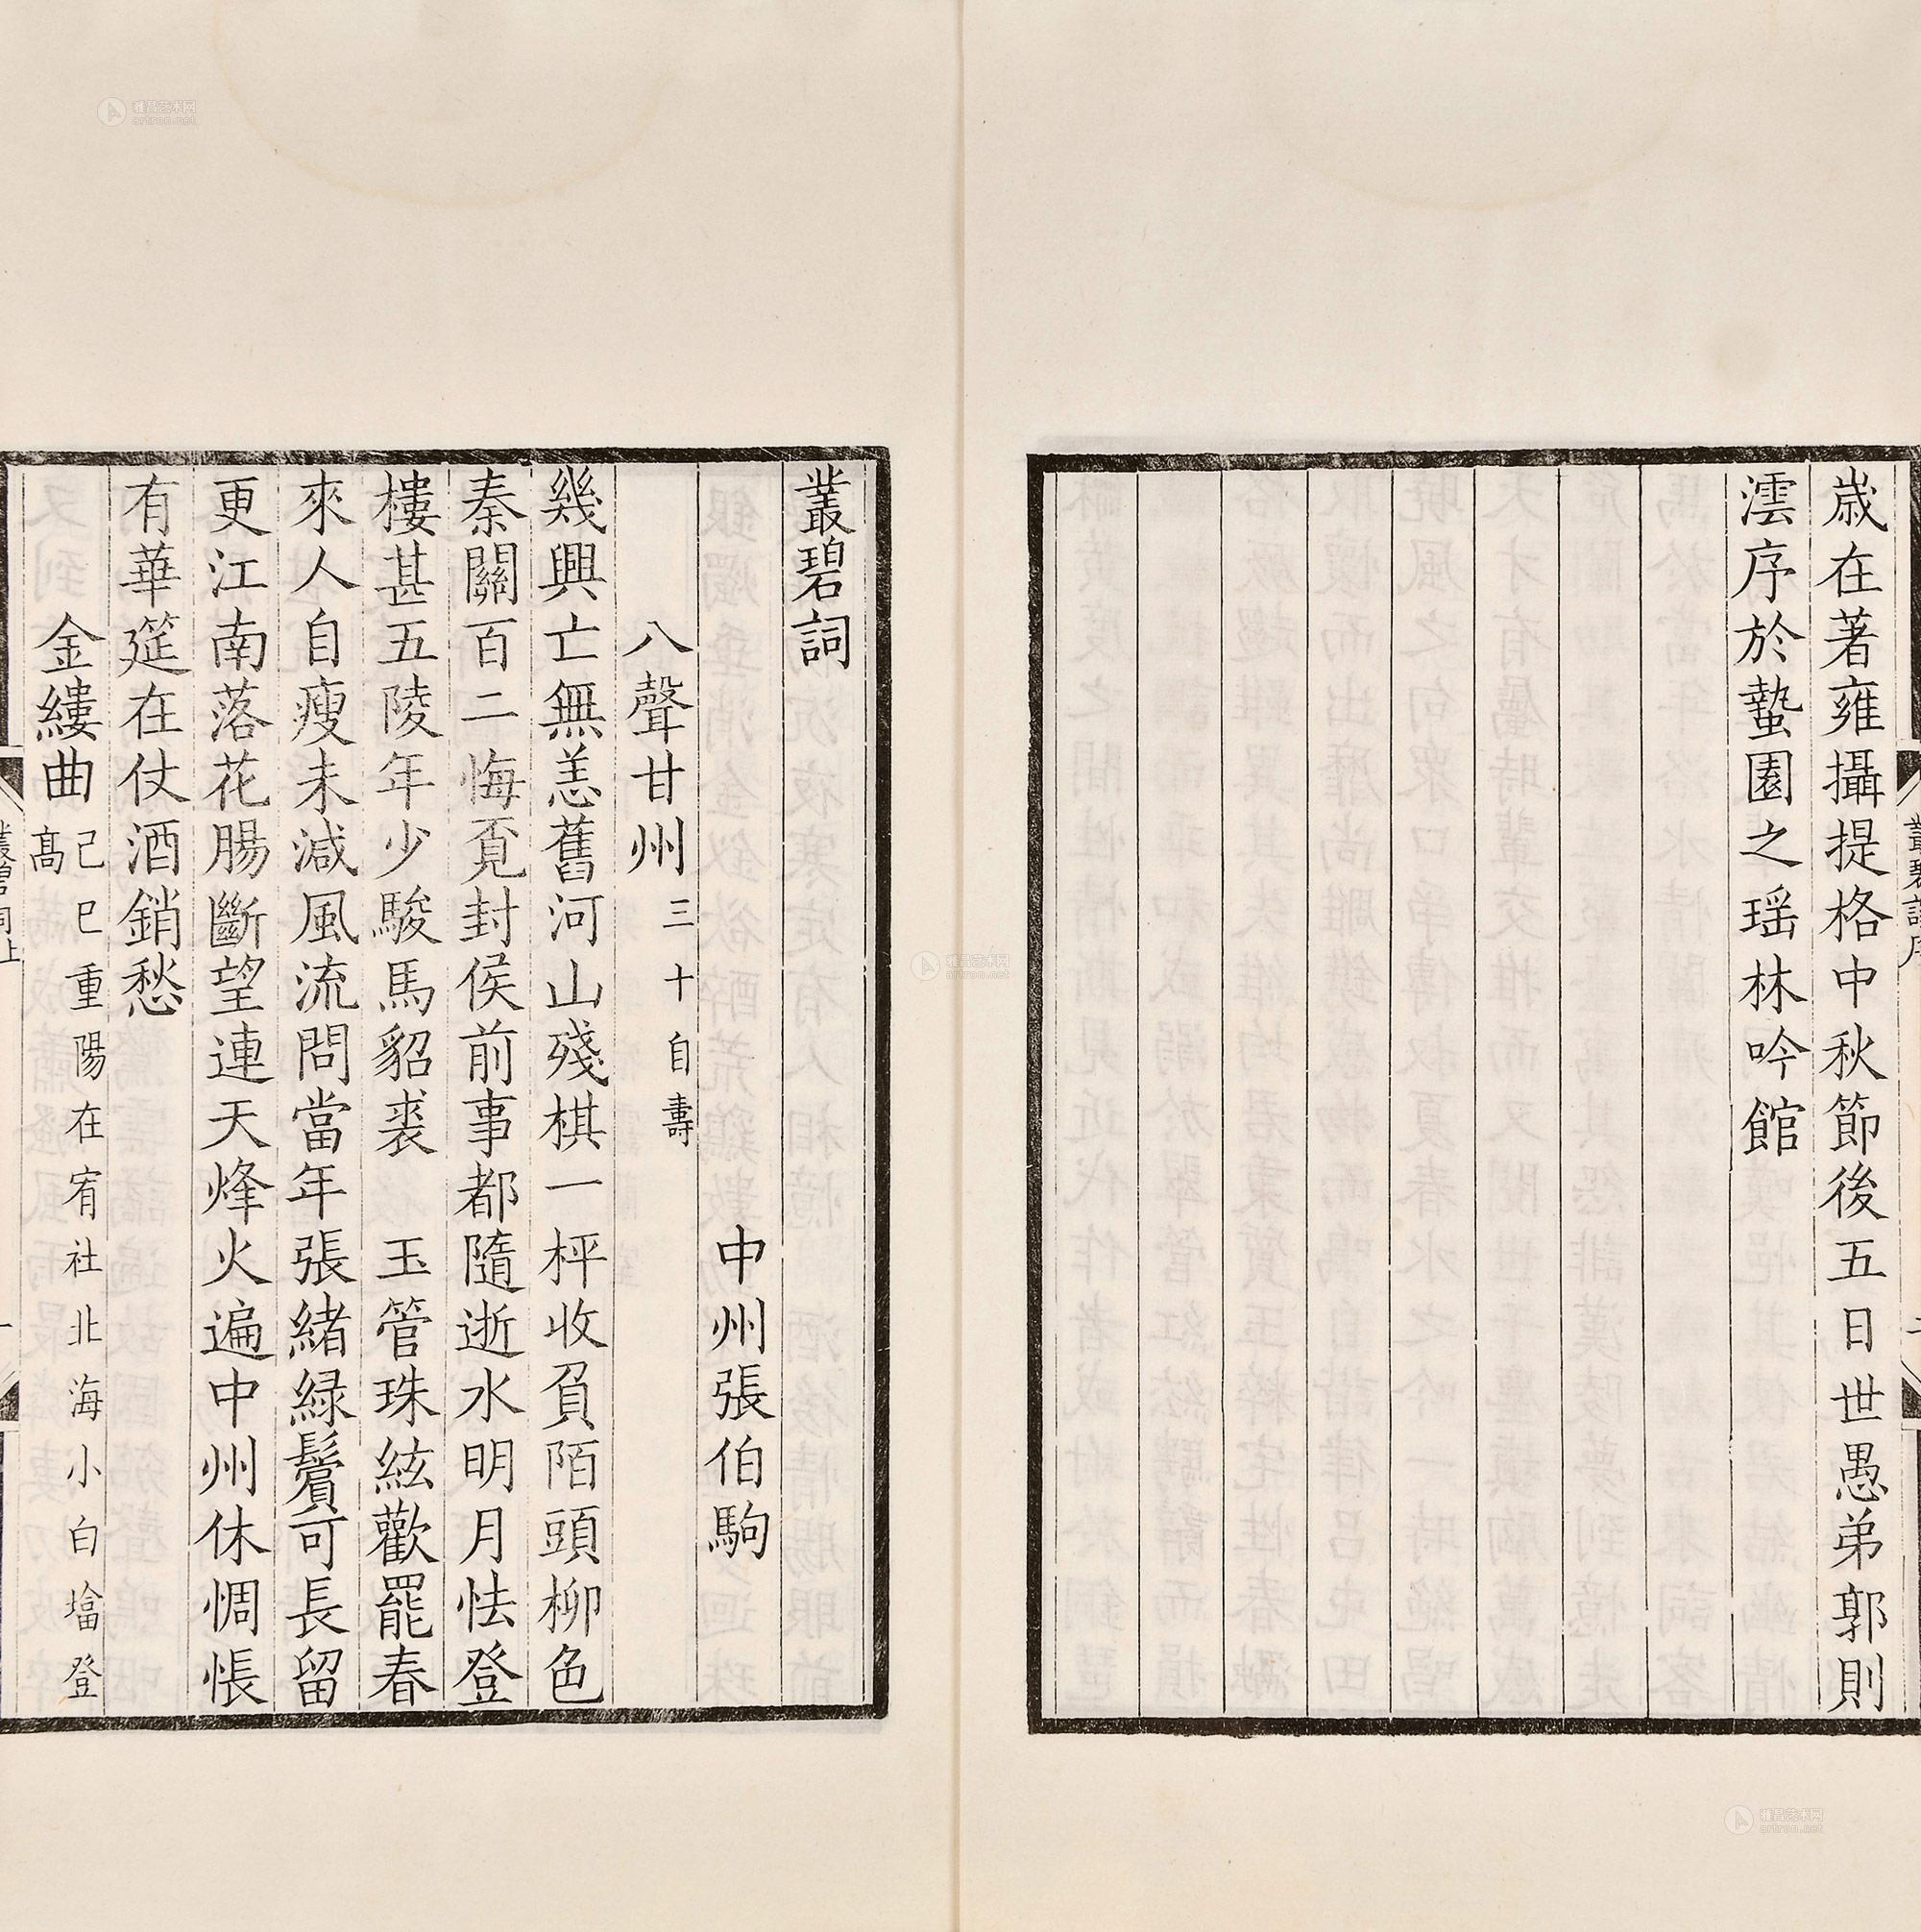 歲在著雍攝提格中秋節後五日世愚弟郭則
澐序於蟄園之瑶林吟館
叢碧詞
中州張伯駒
八聲甘州三十自壽
幾興亡無恙舊河山殘棋一枰收負陌頭柳色
秦關百二悔覔封侯前事都隨逝水明月怯登
樓甚五陵年少駿馬貂裘 玉管珠絃歡罷春
來人自瘦未減風流問當年張緒緑鬢可長留
更江南落花腸斷望連天烽火遍中州休惆悵
有華筵在仗酒銷愁
金縷曲己巳重陽在宥社北海小白墖登
高
叢碧詞上
一
雅昌艺术网
artron.net
雅昌艺术网
artron.net
雅昌艺术网
artron.net